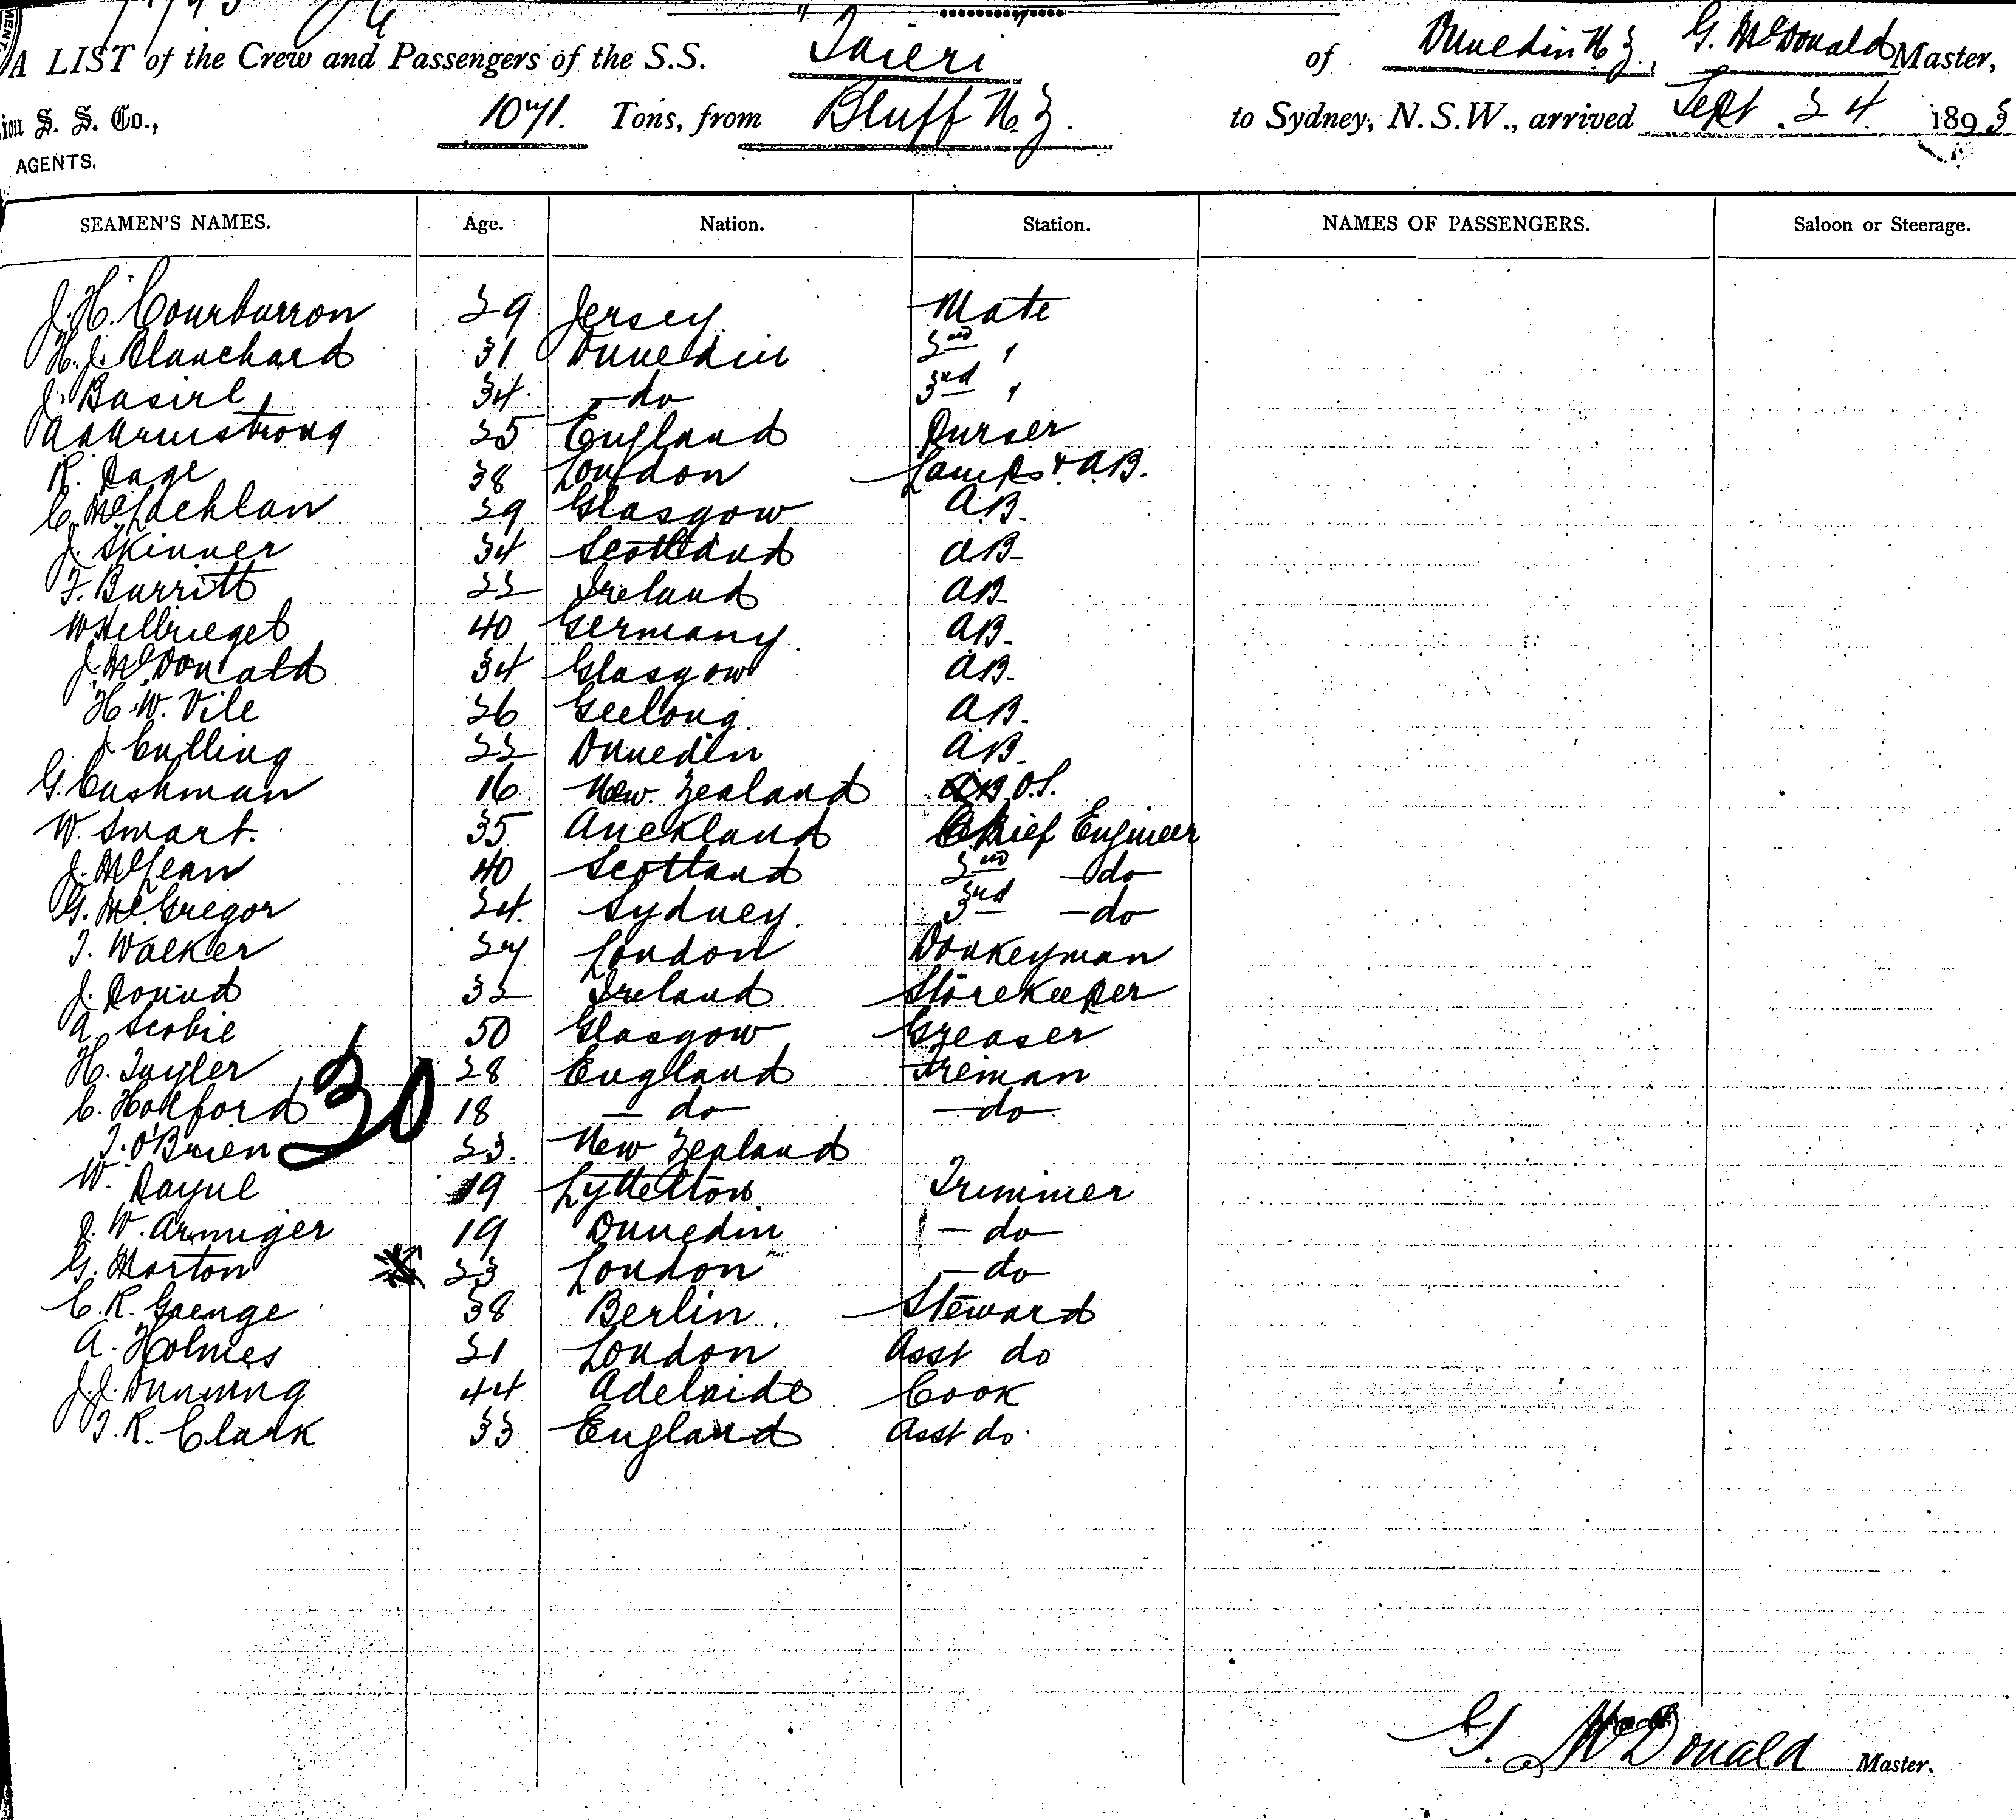 A LIST of the Crew and Passengers of the S.S. "Taieri" of Dunedin N Z, G. McDonald Master,
ion S. S. Co., 1071. Tons, from Bluff N. Z. to Sydney, N.S.W., arrived Sept. 24 1893
AGENTS.
SEAMEN'S NAMES. Age. Nation. Station. NAMES OF PASSENGERS. Saloon or Steerage.
J. H. Courbarron 29 Jersey Mate
H. J. Blanchard 31 Dunedin 2nd "
J. Basire 34 - do 3rd "
A Armstrong 25 England Purser
R. Page 38 London Lamps & A.B.
C. McLachlan 29 Glasgow A.B.
J. Skinner 34 Scotland A.B.
F. Burritt 22 Ireland A.B.
W Hellrieget 40 Germany A.B.
J. McDonald 34 Glasgow A.B.
H. W. Vile 26 Geelong A.B.
J Culling 22 Dunedin A.B.
G. Cushman 16 New Zealand O.S.
W. Smart. 35 Auckland Chief Engineer
J. McLean 40 Scotland 2nd - do
G. McGregor 24 Sydney. 3rd - do
T. Walker 27 London Donkeyman
J. Pound 32 Ireland Storekeeper
A. Scobie 50 Glasgow Greaser
H. Tayler 28 England Fireman
C. Holford 18 - do - do
30
T. O'Brien 23. New Zealand
W. Payne 19 Lyttelton Trimmer
J. W. Armiger 19 Dunedin - do
G. Morton 23 London - do
C. R. Goenge 38 Berlin. Steward
A. Holmes 21 London Asst do
J. J. Dunning 44 Adelaide Cook
T. R. Clark 33 England Asst do.
G. McDonald Master.